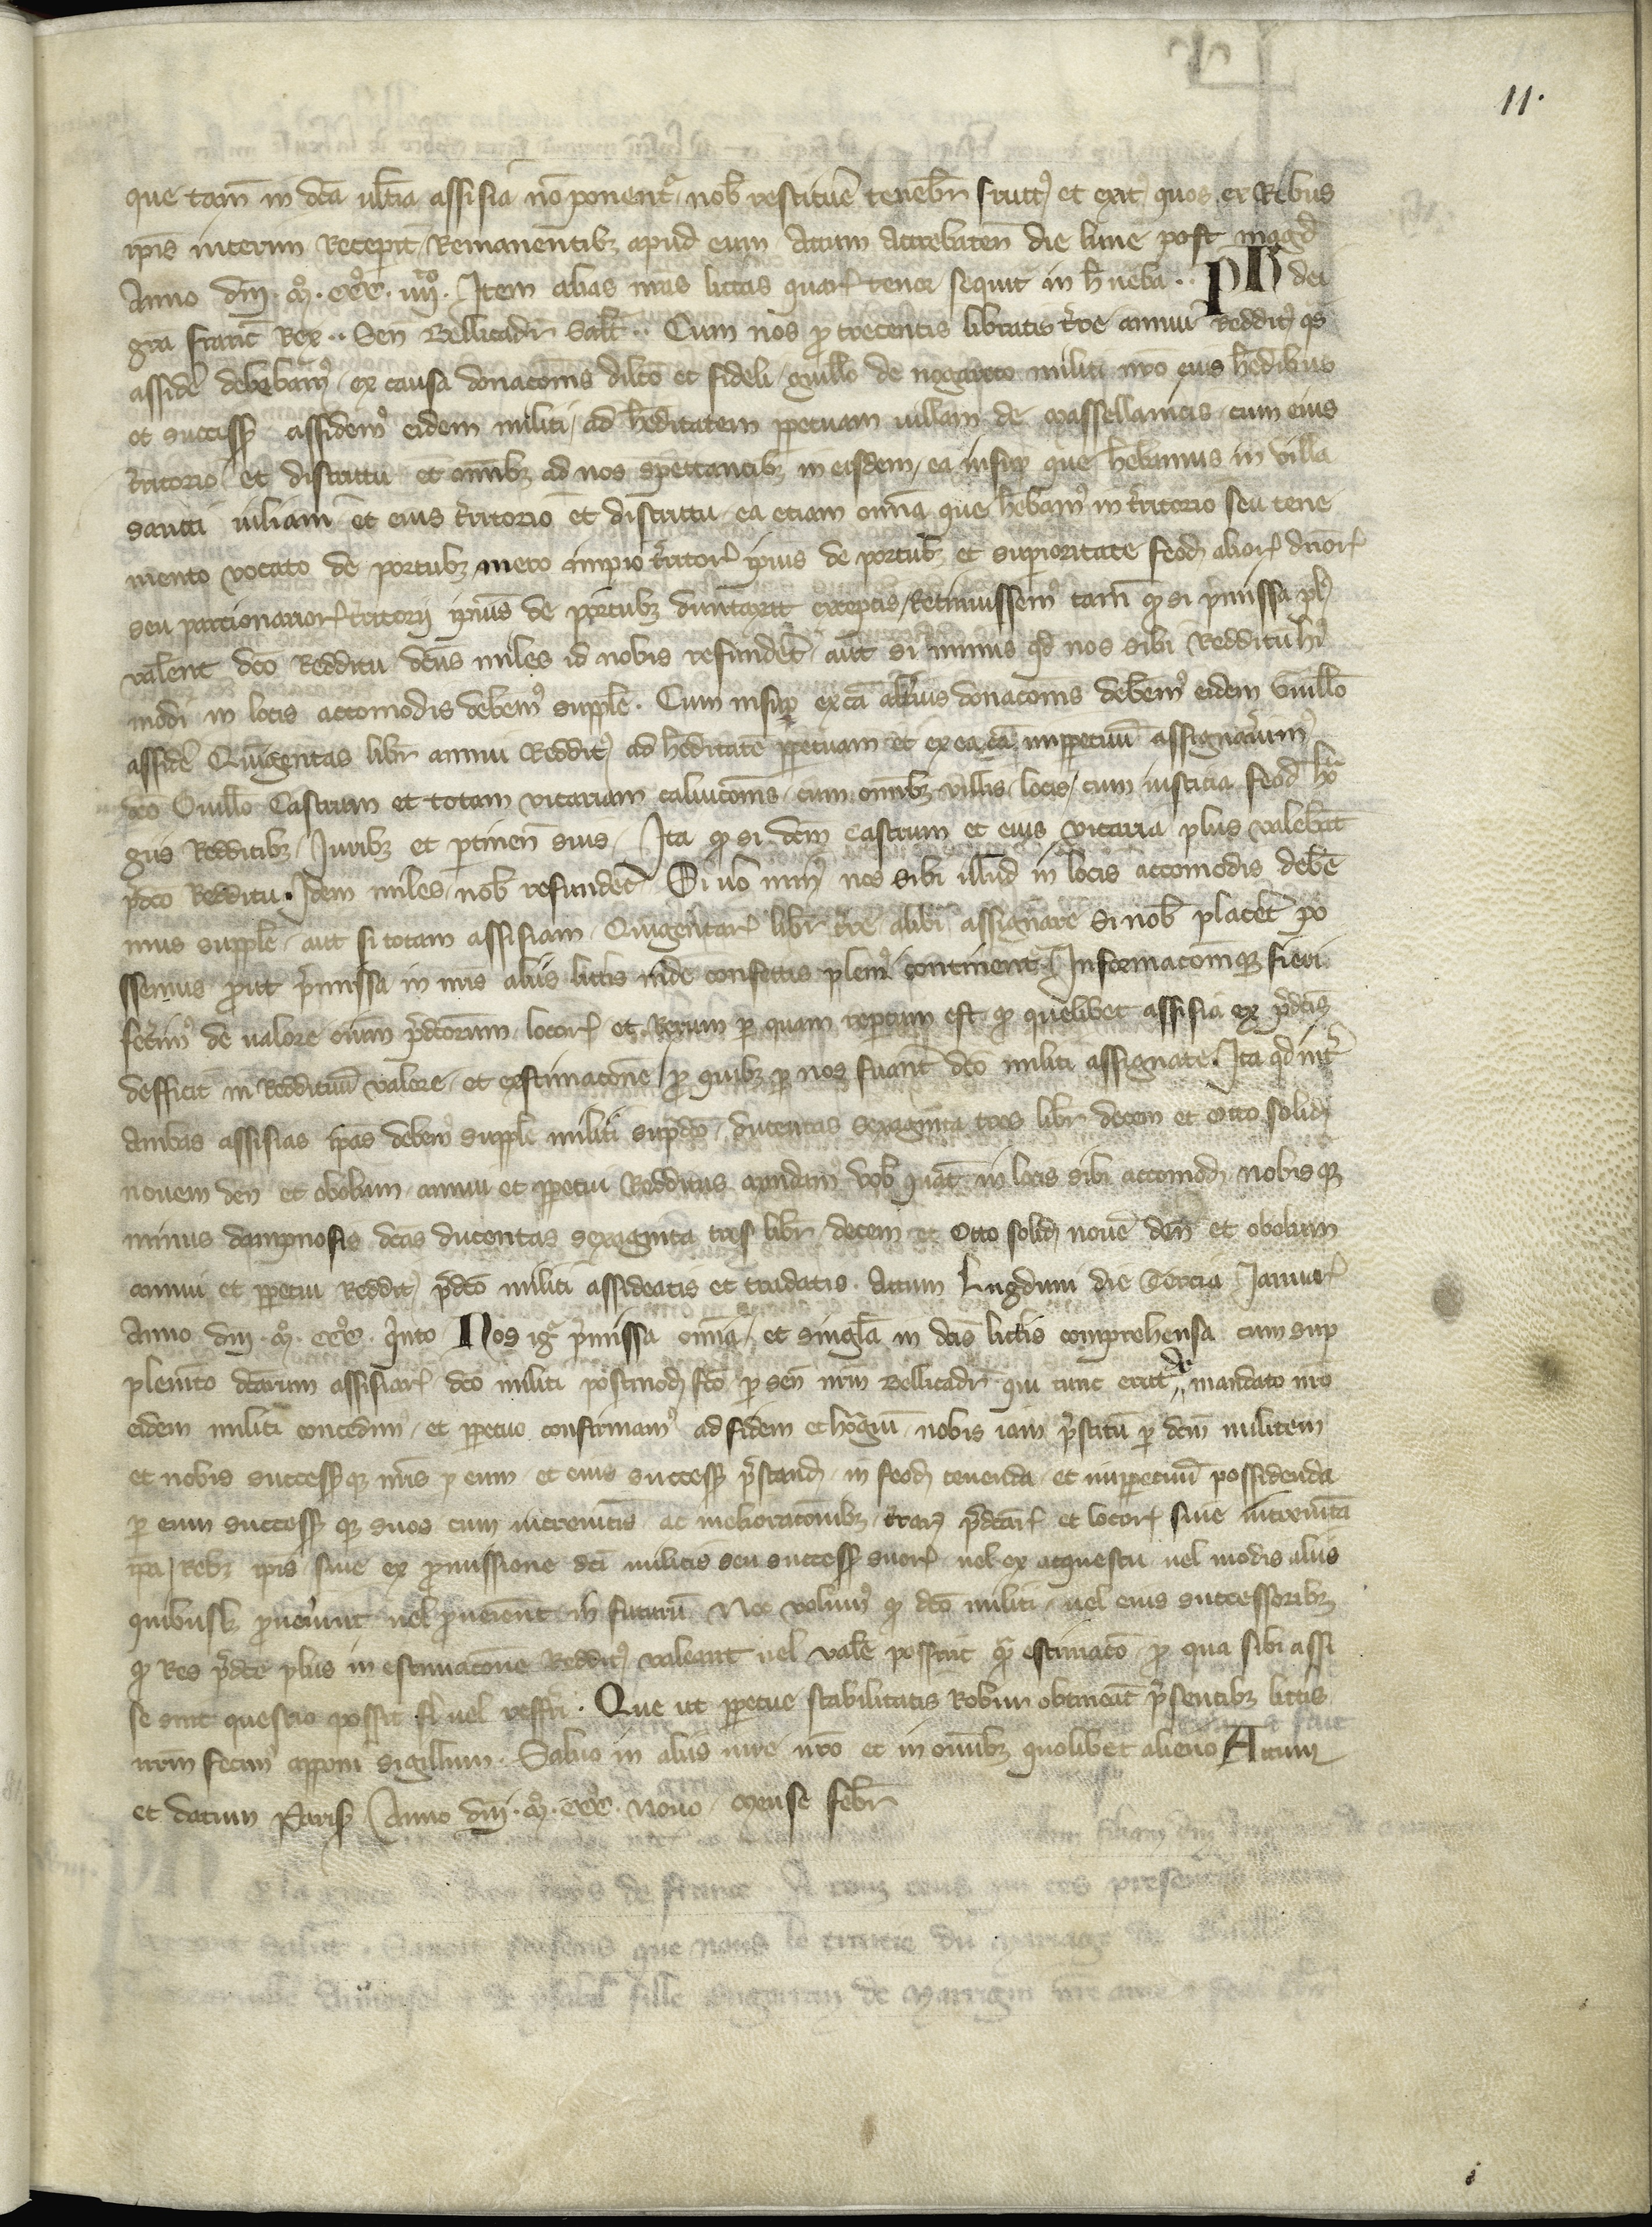 11.
que tam̄ in dc̄a ult̄ia assisia nō ponent᷑ nob̄ restitue᷑ teneb̄r fruct᷒ et exit᷒ quos ex Rebus
ip̄is interim Recepit Remanentibꝫ apud eum Actum Attrebaten̄ die lune post magd᷑
Anno dn̄i mº cccº iiijto Item alias nr̄as litt̄as quaꝝ tenor sequit᷑ in h̄ ueba PH dei
gr̄a franc̄ Rex Sen̄ Bellicadr̄ Salt̄ Cum nos ꝓ trecentis libratis t̄re annui Reddit᷒ qs
asside᷑ debebam᷒ ex causa donacōnis dilc̄o et fideli Guill̄o de nogareto militi nr̄o eius h̄edibus
et success᷑ assidem᷒ eidem militi ad h̄editatem ꝑpetuam uillam de Massellanicis cum eius
t̄ritorio et districtu et om̄ibꝫ ad nos spectantibꝫ in eisdem ea insuꝑ que h̄ebamus in villa
sancti iuliani et eius t̄ritorio et districtu ea etiam omīa que h̄ebam᷒ in t̄ritorio seu tene
mento vocato de portubꝫ mero imꝑio t̄ritor᷑ ip̄ius de portubꝫ et suꝑioritate feod᷑ alioꝝ dn̄oꝝ
seu parcionarioꝝ t̄ritorij ip̄ius de portubꝫ duntaxat exceptis Retinuissem᷒ tam̄ ꝙ si p̄missa pl᷒
valerent dc̄o Redditu dc̄us miles id nobis refundet᷑ aut si minus qd nos sibi Redditu h᷒i᷒
modi in locis accomodis debem᷒ supple᷑ Cum insuꝑ ex cā alt̄ius donacōnis debem᷒ eidem Guill̄o
asside᷑ Quīgentas libr̄ annui Reddit᷒ ad h̄editatē ꝑpetuam et ex ea cā inꝑpetuū assignau̓im᷒
dc̄o Guill̄o Castrum et totam vicariam caluicōnis cum om̄ibꝫ villis locis cum iusticia feod᷑ hō
giis Redditibꝫ Iuribꝫ et ꝑtinen̄ suis Ita ꝙ si dc̄m Castrum et eius vicaria plus valebāt
p̄dc̄o Redditu Idem miles nob̄ refundet᷑ Si uō min᷒ nos sibi illud in locis accomodis debē
mus supple᷑ aut si totam assisiam Quīgentaꝝ libr̄ t̄re alibi assignare si nob̄ placet᷑ po
ssemus ꝓut p̄missa in nr̄is aliis litt̄is inde confectis plen᷒ continent᷑ Informacōnemqꝫ fieri
fecim᷒ de ualore om̄iū p̄dc̄orum locoꝝ et Rerum ꝑ quam reꝑtum est ꝙ quelibet assisia ex p̄dc̄is
defficit in Reddituū valore et extimacōne ꝓ quibꝫ ꝑ nos fuant dc̄o militi assignate Ita qd int᷑
ambas assisias ip̄as debem᷒ supple᷑ militi sup̄dc̄o ducentas sexaginta tres libr̄ decem et octo solid᷑
nouem den̄ et obolum annui et ꝑpetui Redditus mandam᷒ vob̄ quat᷒ in locis sibi accomod᷑ nobisqꝫ
minus dampnosis dc̄as ducentas sexaginta tres libr̄ decem et Octo solid᷑ nouē den̄ et obolum
annui et ꝑpetui Reddit᷒ p̄dc̄o militi assideatis et tradatis Actum Lugduni die Tercia Ianuar᷑
Anno dn̄i mº cccº Qn̄to Nos igr̄ p̄missa om̄ia et singl̄a in dc̄is litt̄is comprehensa cum sup
plemēto dc̄arum assisiaꝝ dc̄o militi postmod᷑ fc̄o ꝑ sen̄ nr̄m Bellicadr̄ qui tunc erat de mandato nr̄o
eidem militi concedim᷒ et ꝑpetuo confirmam᷒ ad fidem et hōgiū nobis iam p̄stitū ꝑ dc̄m militem
et nobis success᷑qꝫ nr̄is ꝑ eum et eius success᷑ p̄stand᷑ in feod᷑ tenenda et inꝑpetuū possidenda
ꝑ eum success᷑qꝫ suos cum incremētis ac melioracōnibꝫ t̄raꝝ p̄dc̄aꝝ et locoꝝ siue incremēta
ip̄a Rebꝫ ip̄is siue ex ꝓmissione dc̄i militis seu success᷑ suoꝝ uel ex acquestu uel modis aliis
quibusꝫ ꝓuen̓unt uel ꝓuenient in futurū Nec volum᷒ ꝙ dc̄o militi uel eius successoribꝫ
ꝙ Res p̄dc̄e plus in estimacōne Reddit᷒ valeant uel vale᷑ possint q̄ estimac̄o ꝓ qua sibi assi
se sint questio possit fi᷑ uel reffr̄i Que ut ꝑpetue stabilitatis Robur obtineāt p̄sentibꝫ litt̄is
nr̄m fecim᷒ apponi sigillum Saluo in aliis iure nr̄o et in om̄ibꝫ quolibet alieno Actum
et datum Paris᷑ Anno dn̄i mº cccº nono mense febr̄